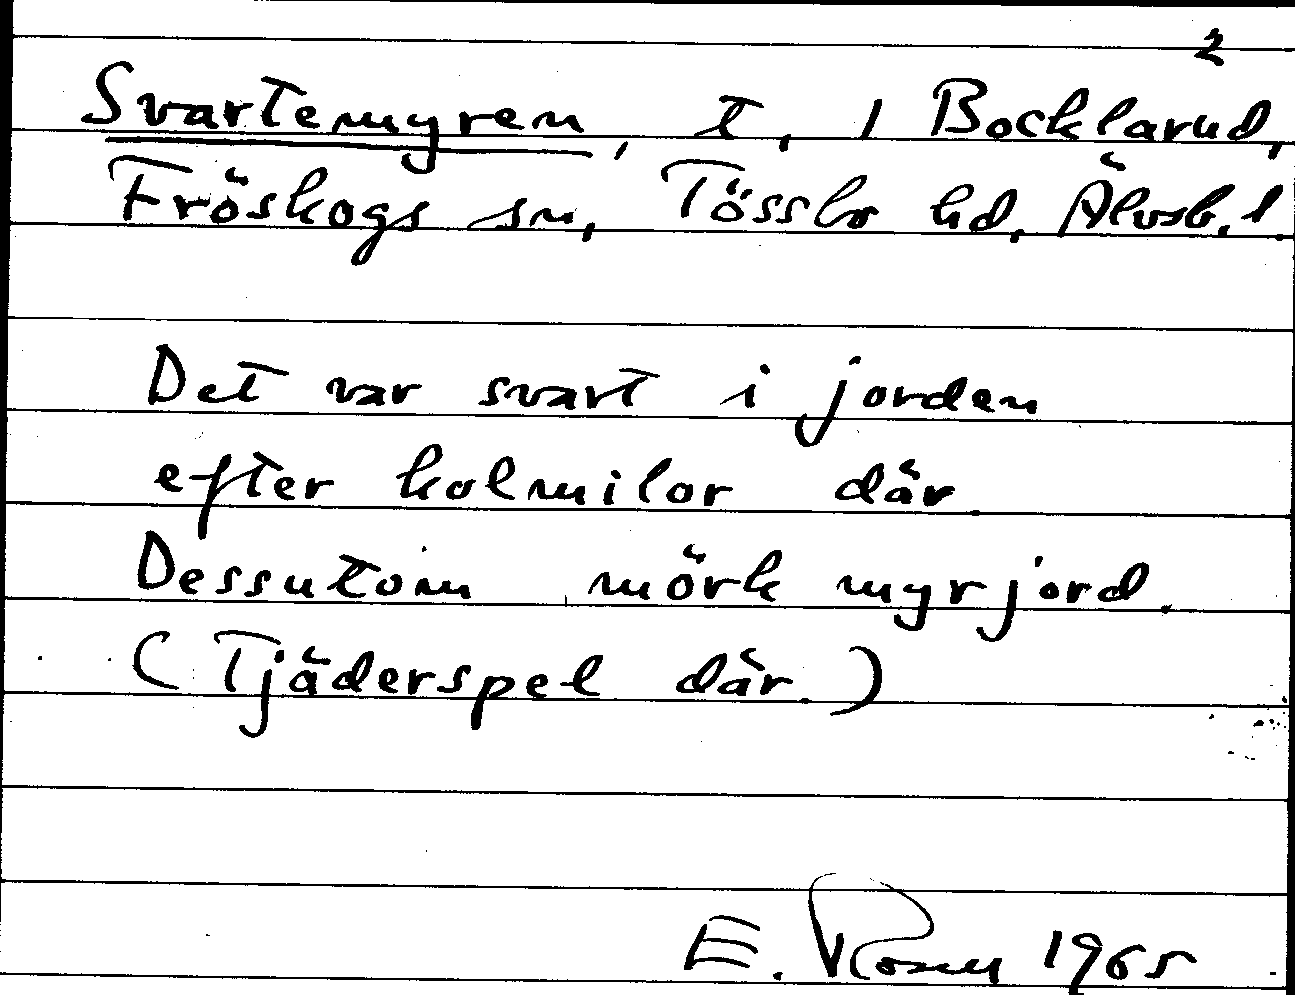 2
Svartemyren, t, 1 Bocklarud,
Fröskogs sn, Tössbo hd, Älvsb. l.
Det var svart i jorden
efter kolmilor där.
Dessutom mörk myrjord.
(Tjäderspel där.)
E. Rosen 1965